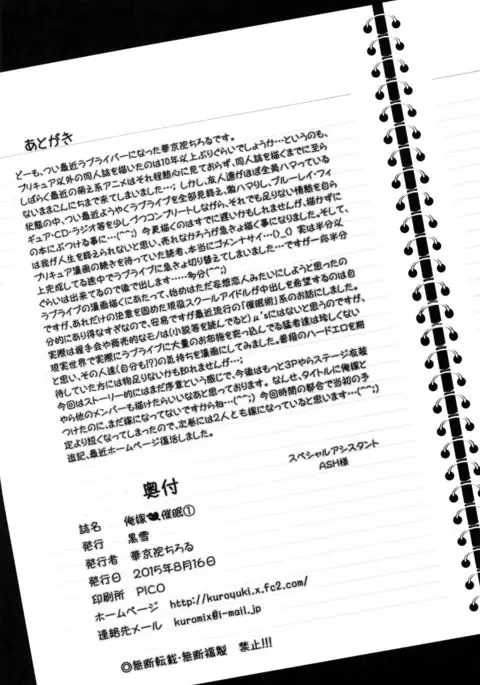 あとがき
どーも、つい最近ラブライバーになった華京院ちろるです。
プリキュア以外の同人誌を描いたのは10年以上ぶりぐらいでしょうか…というのも、
しばらく最近の萌え系アニメはそれ程熱心に見ておらず、同人誌を描くまでに至ら
ないままにんちまで来てしまいました…；しかし、友人達がほぼ全員ハマっている
状態の中、つい最近ようやくラブライブを全部見終え、激ハマりし、ブルーレイ・フィ
ギュア・CD・ラジオ等を少しづつコンプリートしながら、それでも足りない情熱を自ら
の本にぶつける事に…(^^;) 今更描くのはすでに遅いかもしれませんが、描かずに
は我が人生を終えられないと思い、売れなかろうが急きょ描く事になりました。そして、
プリキュア漫画の続きを待っていた読者、本当にゴメンナサイ…()_() 実は半分以
上完成してる途中でラブライブに急きょ切り替えてしまいました…ですが一両半分
ぐらいは出来てるので後で出します……多分(^^;)
ラブライブの漫画描くにあたって、始めはただ妄想恋人みたいにしようと思ったの
ですが、あれだけの法案を固めた現役スクールアイドルが中出しを希望するのは自
分的にあり得なすぎなので、安易ですが最近流行の「催眠術」系のお話にしました。
実際は握手会や商売的なモノは(小説等を読んでると)μ'sにはないと思うのですが、
現実世界で実際にラブライブに大量のお布施を突っ込んでる猛者達は珍しくない
と思い、その人達(自分も!?)の気持ちを漫画にしてみました。普段のハードエロを期
待していた方には物足りないかも知れませんが…；
今回はストーリー的にはまだ序章という感じで、今後はもっと3Pやらステージ衣装
やら他のメンバーも描けたらいいなあと思っております。なんせ、タイトルに俺嫁と
つけたのに、まだ嫁になってないですからね…(^^;) 今回時間の都合で当初の予
定より短くなってしまったので、次巻には2人とも嫁になっていると思います…(^^;)
追記、最近ホームページ復活しました。
スペシャルアシスタント
ASH様
奥付
誌名 俺嫁❤催眠①
発行 黒雪
発行者 華京院ちろる
発行日 2015年8月16日
印刷所 PICO
ホームページ http://kuroyuki.x.fc2.com/
連絡先メール kuromix@i-mail.jp
◎無断転載・無断複製 禁止!!!